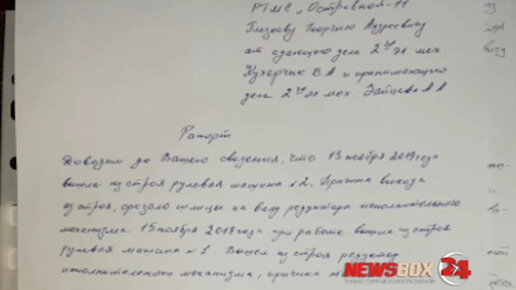 РТМС „Островной-11
Глазкову Георгию Андреевичу
от сдающего дела 2го эл. мех.
Кухаренко В.А и принимающего
дела 2го эл мех. Зайцева А А
Рапорт
Доводим до Вашего сведения, что 13 ноября 2019 года
вышла из строя рулевая машина №2. Причина выхода
из строя, срезало шлицы на валу редуктора исполнительного
механизма. 15 ноября 2019 года при работе вышла из строя
рулевая машина №1. Вышел из строя редуктор
исполнительного механизма, причина
NEWSBOX 24